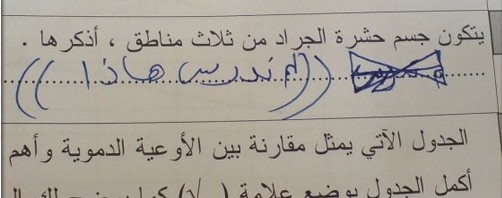 يتكون جسم حشرة الجراد من ثلاث مناطق ، أذكرها .
((لم ندرس هاذا))
الجدول الآتي يمثل مقارنة بين الأوعية الدموية وأهم
أكمل الجدول بوضع علامة ( √ ) كما